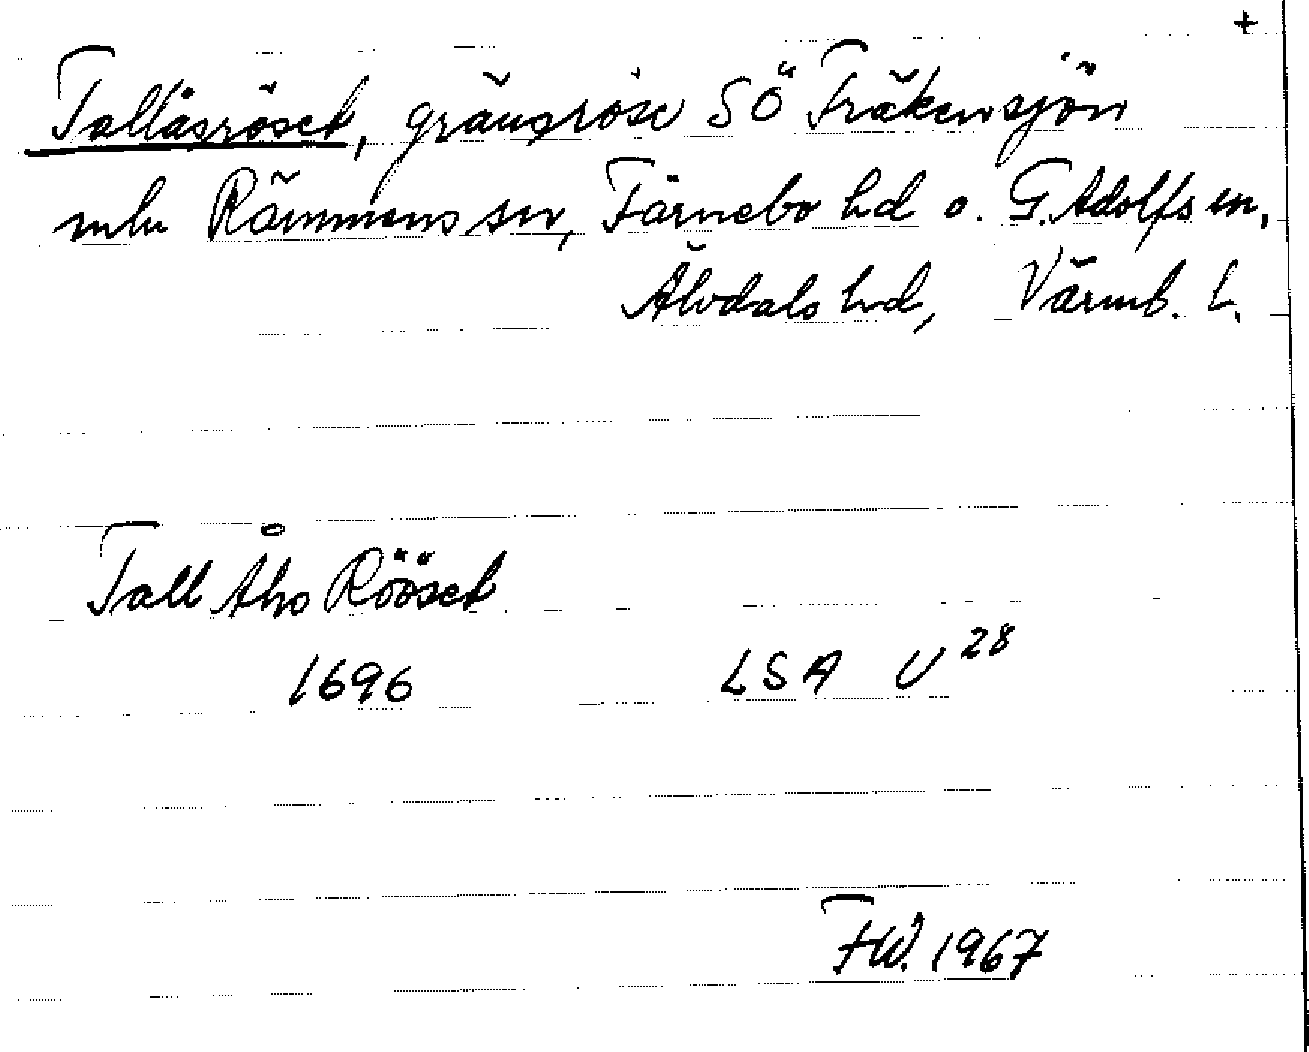 +
Tallåsröset, gränsröse SÖ Fräkensjön
mln Rämmens sn, Färnebo hd o. G. Adolfs sn,
Älvdals hd, Värml. L.
Tall Åhs Rööset
1696 LSA U 28
FW. 1967